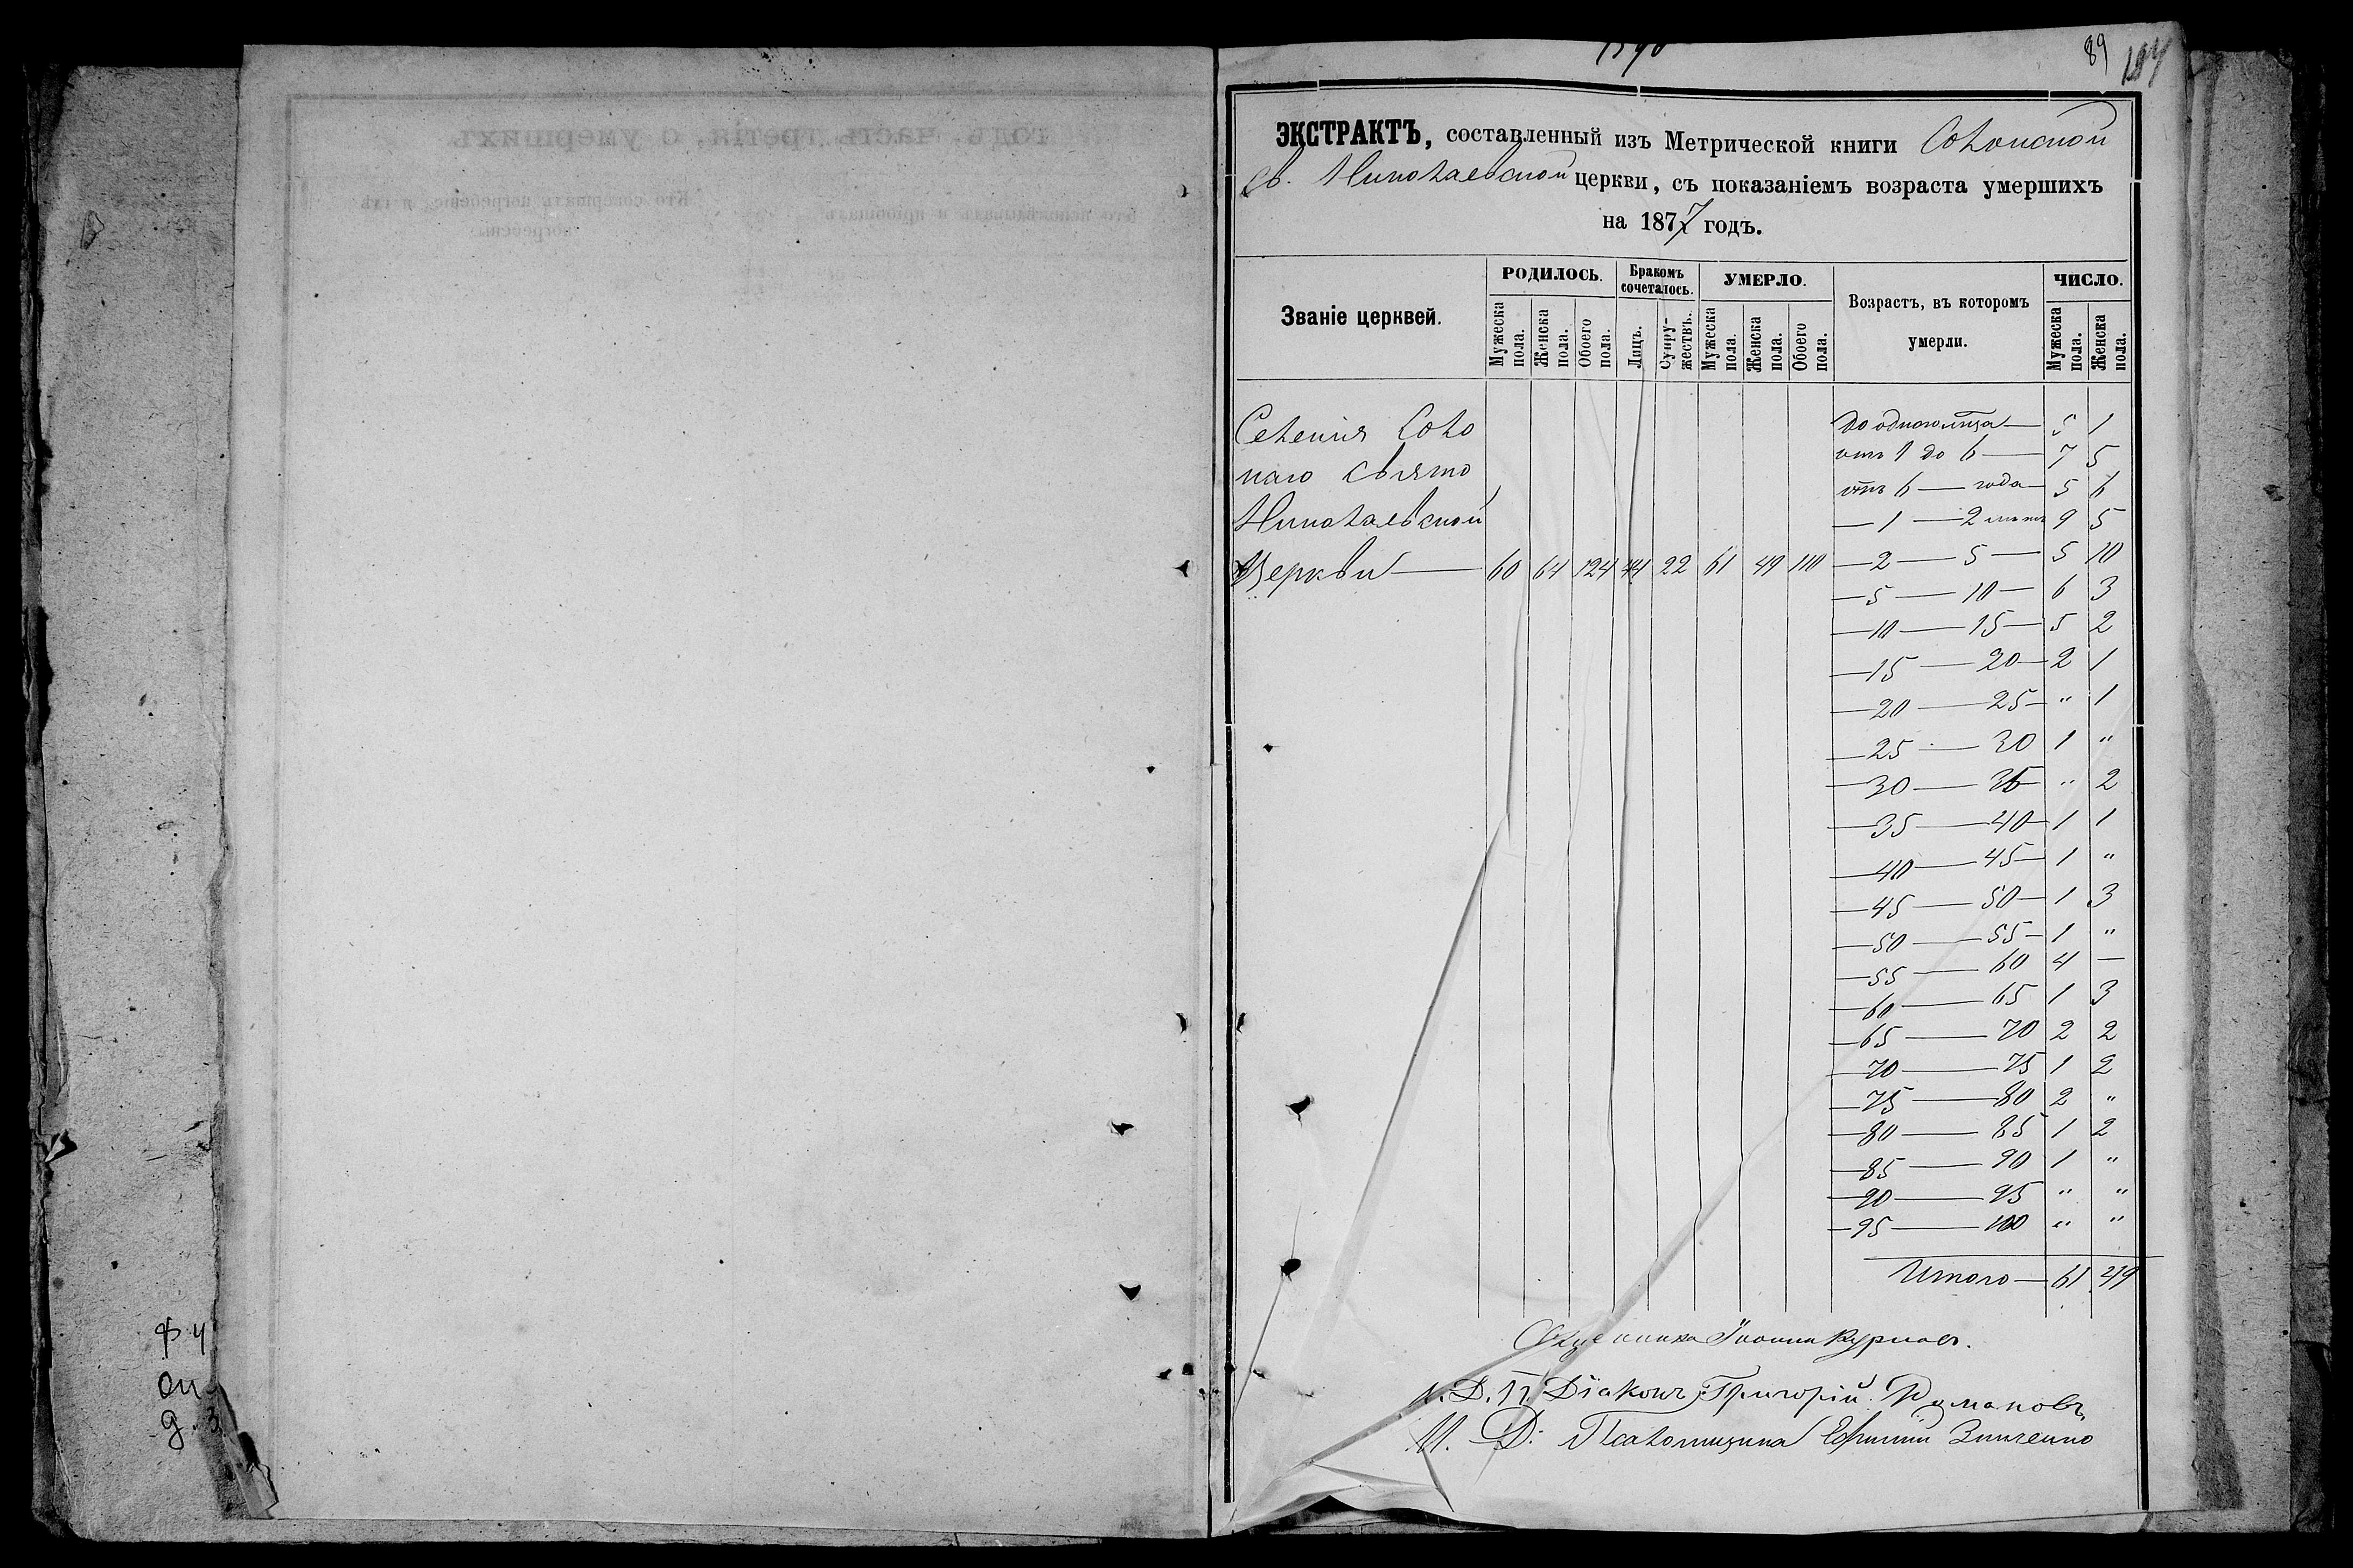 89
ЭКСТРАКТЪ, составленный изъ Метрической книги Солонской
Св. Николаевской церкви, съ показаніемъ возраста умершихъ
на 1877 годъ.
Званіе церквей. РОДИЛОСЬ. Бракомъ сочеталось. УМЕРЛО. Возрастъ, въ которомъ умерли. ЧИСЛО.
Мужеска пола. Женска пола. Обоего пола. Лицъ. Супружествъ. Мужеска пола. Женска пола. Обоего пола. Мужеска пола. Женска пола.
Селенія Соло
наго Свято
Николаевской
Церкви — 60 64 124 44 22 61 49 110
до одного — 5 1
отъ 1 до 6 — 7 5
отъ 6 — года — 5 6
— 1 — 2 лѣтъ 9 5
— 2 — 5 — 5 10
— 5 — 10 — 6 3
— 10 — 15 — 5 2
— 15 — 20 — 2 1
— 20 — 25 — " 1
— 25 — 30 1 "
— 30 — 35 " 2
— 35 — 40 — 1 1
— 40 — 45 — 1 "
— 45 — 50 — 1 3
— 50 — 55 — 1 "
— 55 — 60 4 —
— 60 — 65 1 3
— 65 — 70 2 2
— 70 — 75 1 2
— 75 — 80 2 "
— 80 — 85 1 2
— 85 — 90 1 "
— 90 — 95 " "
— 95 — 100 " "
Итого — 61 49
Іоаннъ
Діаконъ Григорій Романовъ
И. Д. Псаломщика Ефимій Зинченко
годъ, часть третія, о умершихъ
Кто совершалъ погребеніе и гдѣ погребены.
Кто исповѣдывалъ и пріобщалъ.